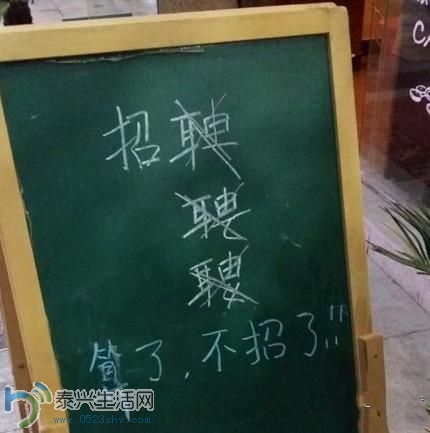 招聘
聘
聘
算了,不招了!!
泰兴生活网
www.0523shw.com